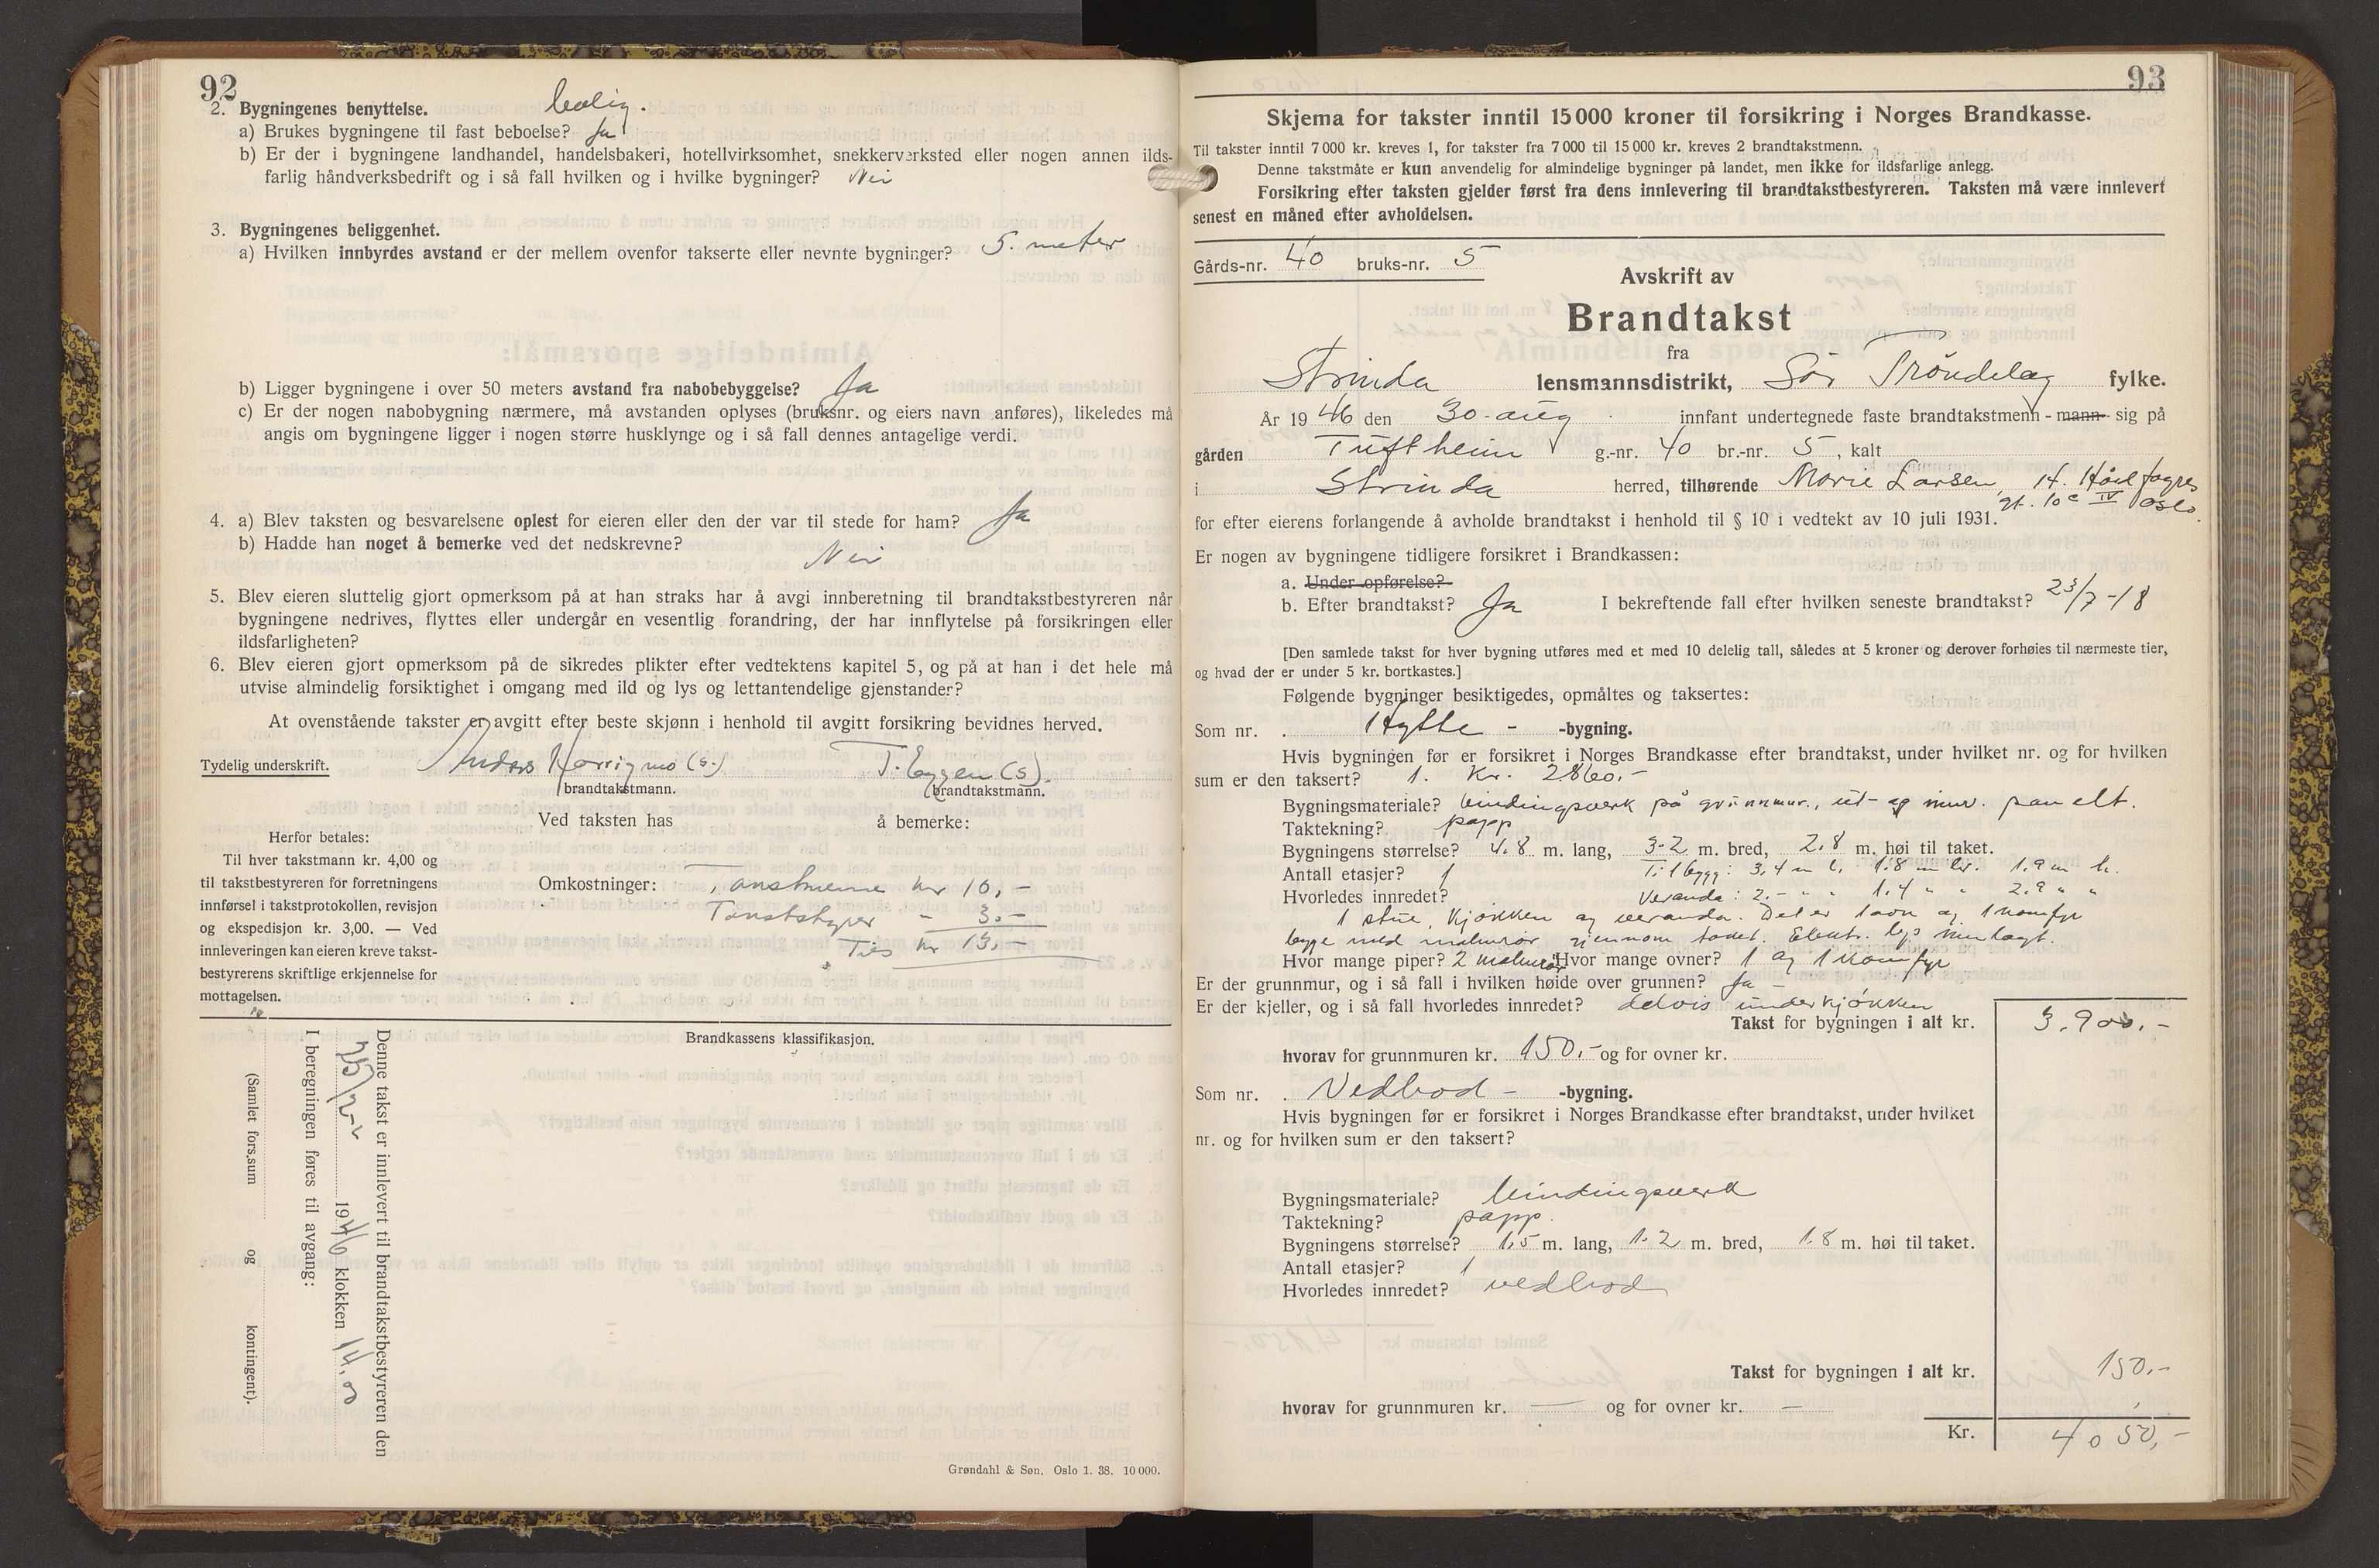 92
2. Bygningenes benyttelse. bolig.
a) Brukes bygningene til fast beboelse? Ja
b) Er der i bygningene landhandel, handelsbakeri, hotellvirksomhet, snekkerverksted eller nogen annen ilds-
farlig håndverksbedrift og i så fall hvilken og i hvilke bygninger? Nei
3. Bygningenes beliggenhet.
a) Hvilken innbyrdes avstand er der mellem ovenfor takserte eller nevnte bygninger? 5. meter
b) Ligger bygningene i over 50 meters avstand fra nabobebyggelse? Ja
c) Er der nogen nabobygning nærmere, må avstanden oplyses (bruksnr. og eiers navn anføres), likeledes må
angis om bygningene ligger i nogen større husklynge og i så fall dennes antagelige verdi.
4. a) Blev taksten og besvarelsene oplest for eieren eller den der var til stede for ham? Ja
b) Hadde han noget å bemerke ved det nedskrevne? Nei
5. Blev eieren sluttelig gjort opmerksom på at han straks har å avgi innberetning til brandtakstbestyreren når
bygningene nedrives, flyttes eller undergår en vesentlig forandring, der har innflytelse på forsikringen eller
ildsfarligheten?
6. Blev eieren gjort opmerksom på de sikredes plikter efter vedtektens kapitel 5, og på at han i det hele må
utvise almindelig forsiktighet i omgang med ild og lys og lettantendelige gjenstander?
At ovenstående takster er avgitt efter beste skjønn i henhold til avgitt forsikring bevidnes herved.
Tydelig underskrift. Anders (s.) T. Eggen (s).
brandtakstmann. brandtakstmann.
Ved taksten has å bemerke:
Herfor betales:
Til hver takstmann kr. 4,00 og
til takstbestyreren for forretningens
innførsel i takstprotokollen, revisjon
og ekspedisjon kr. 3,00. — Ved
innleveringen kan eieren kreve takst-
bestyrerens skriftlige erkjennelse for
mottagelsen.
Omkostninger: kr 10,-
- 3.-
kr 13,-
Brandkassens klassifikasjon.
Denne takst er innlevert til brandtakstbestyreren den
1946 klokken 14.00
I beregningen føres til avgang:
(Samlet fors.sum og kontingent).
Grøndahl & Søn. Oslo 1. 38. 10 000.
93
Skjema for takster inntil 15 000 kroner til forsikring i Norges Brandkasse.
Til takster inntil 7 000 kr. kreves 1, for takster fra 7 000 til 15 000 kr. kreves 2 brandtakstmenn.
Denne takstmåte er kun anvendelig for almindelige bygninger på landet, men ikke for ildsfarlige anlegg.
Forsikring efter taksten gjelder først fra dens innlevering til brandtakstbestyreren. Taksten må være innlevert
senest en måned efter avholdelsen.
Gårds-nr. 40 bruks-nr. 5
Avskrift av
Brandtakst
fra
Strinda lensmannsdistrikt, Sør Trøndelag fylke.
År 1946 den 30. aug innfant undertegnede faste brandtakstmenn - mann sig på
gården Tuftheim g.-nr. 40 br.-nr. 5, kalt
i Strinda herred, tilhørende Marie Larsen, H. Hårfagres
gt. 10 c IV Oslo.
for efter eierens forlangende å avholde brandtakst i henhold til § 10 i vedtekt av 10 juli 1931.
Er nogen av bygningene tidligere forsikret i Brandkassen:
a. Under opførelse?
b. Efter brandtakst? Ja I bekreftende fall efter hvilken seneste brandtakst? 23/7-18
[Den samlede takst for hver bygning utføres med et med 10 delelig tall, således at 5 kroner og derover forhøies til nærmeste tier,
og hvad der er under 5 kr. bortkastes.]
Følgende bygninger besiktigedes, opmåltes og taksertes:
Som nr. Hytte - -bygning.
Hvis bygningen før er forsikret i Norges Brandkasse efter brandtakst, under hvilket nr. og for hvilken
sum er den taksert? 1. Kr. 2860.-
Bygningsmateriale? bindingsverk på grunnmur., ut- og innv. panelt.
Taktekning? papp
Bygningens størrelse? 4.8 m. lang, 3.2 m. bred, 2.8 m. høi til taket.
Antall etasjer? 1 Tilbygg: 3,4 m l. 1.8 m br. 1.9 m h.
Hvorledes innredet? Veranda: 2,- " " 1.4 " " 2.9 " "
1 stue, kjøkken og veranda. Det er 1 ovn og 1 komfyr
begge med malmrør gjennom taket. Elektr. lys innlagt.
Hvor mange piper? 2 malmrør Hvor mange ovner? 1 og 1 komfyr
Er der grunnmur, og i så fall i hvilken høide over grunnen? Ja
Er der kjeller, og i så fall hvorledes innredet? delvis under kjøkken
Takst for bygningen i alt kr. 3.900,-
hvorav for grunnmuren kr. 150,- og for ovner kr.
Som nr. Vedbod - -bygning.
Hvis bygningen før er forsikret i Norges Brandkasse efter brandtakst, under hvilket
nr. og for hvilken sum er den taksert?
Bygningsmateriale? bindingsverk
Taktekning? papp.
Bygningens størrelse? 1,5 m. lang, 1.2 m. bred, 1.8 m. høi til taket.
Antall etasjer? 1
Hvorledes innredet? vedbod
Takst for bygningen i alt kr. 150,-
hvorav for grunnmuren kr. — og for ovner kr. —
Kr. 4050,-